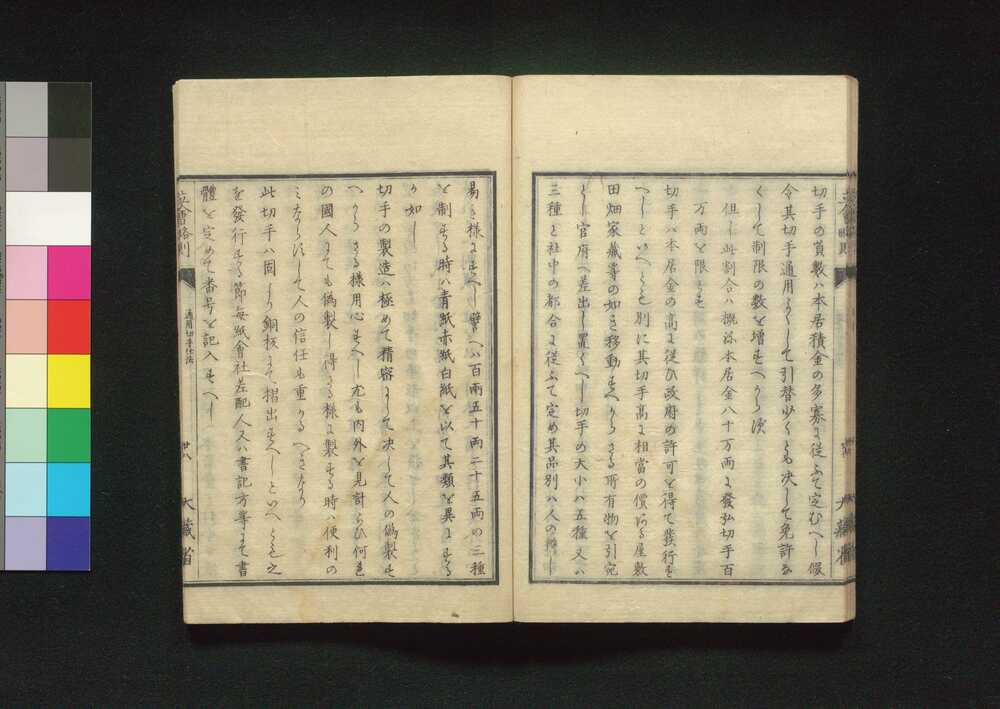 切手の員數ハ本居積金の多寡に從ふて定むへし假
令其切手通用よくして引替少くとも決して免許な
くして制限の数を増すへからす
但し此割合ハ概ね本居金八十万両に發弘切手百
万両を限とす
切手ハ本居金の高に從ひ政府の許可を得て發行す
へしといへとも別に其切手高に相當の價ある屋敷
田畑家藏等の如き移動すへからさる所有物を引宛
として官府へ差出し置くへし切手の大小ハ五種又ハ
三種と社中の都合に從ふて定め其品別ハ人の辨し
易き様にすへし譬へハ百両五十両二十五両の三種
を制する時ハ青紙赤紙白紙を以て其類を異にする
か如し
切手の製造ハ極めて精密にして决して人の偽製す
へからさる様用心すへし尤も内外を見計らひ何れ
の國人にても偽製し得さる様に製する時ハ便利の
ミならすして人の信任も重かるへきなり
此切手ハ固より銅板にて摺出すへしといへとも之
を發行する節毎紙會社差配人又ハ書記方等にて書
體を定めて番号を記入すへし
立會略則
通用切手仕法
廿八
大藏省